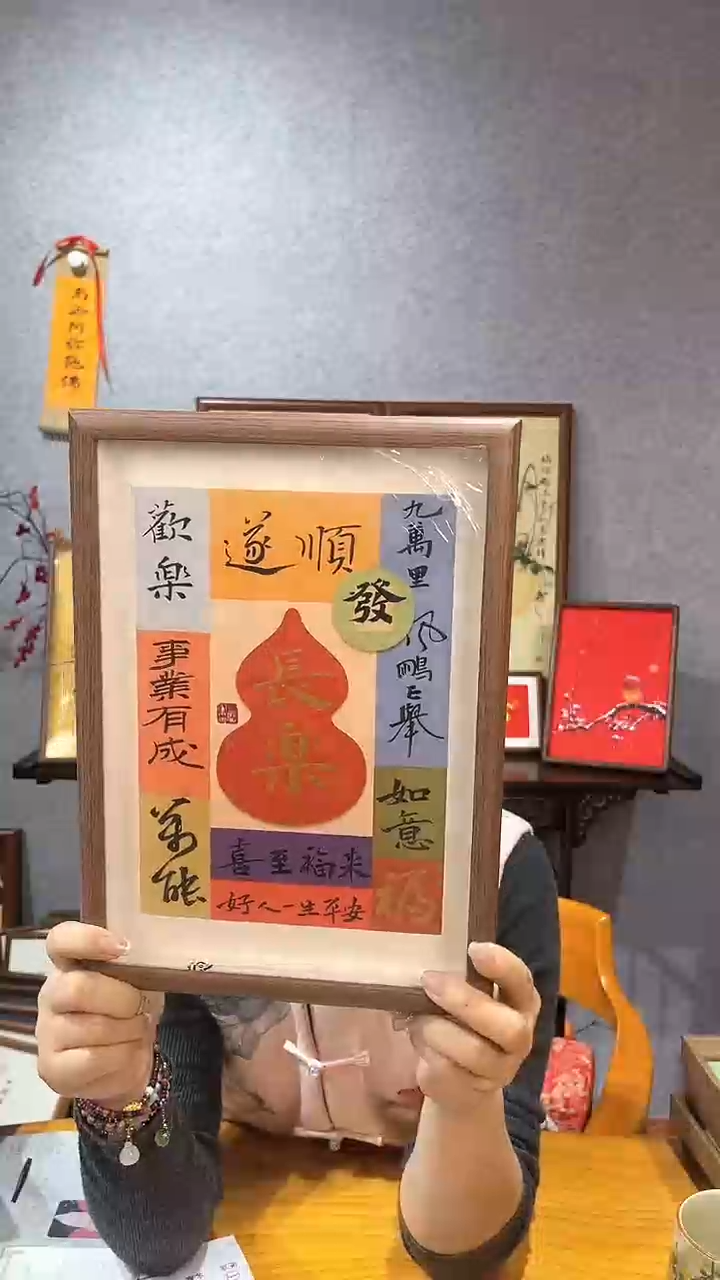 南無阿彌陀佛
歡樂
遂順
發
九萬里
風鵬正舉
事業有成
長樂
如意
萬能
喜至福来
福
好人一生平安